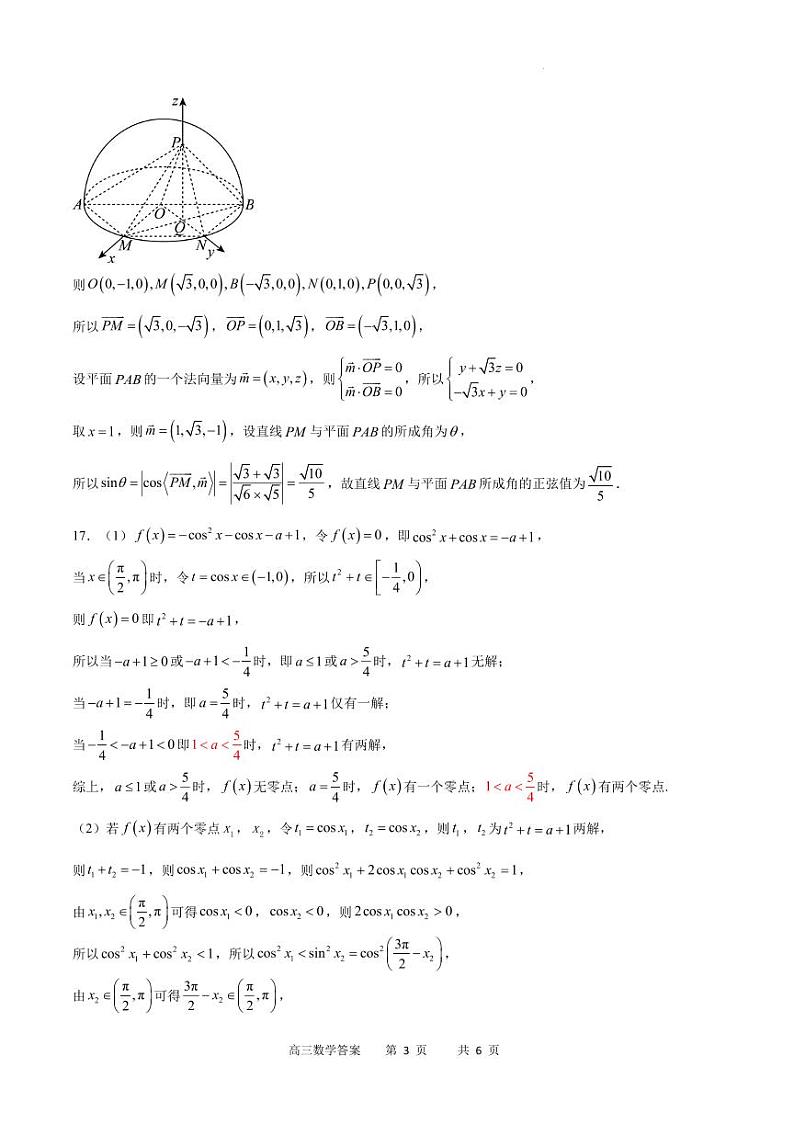 z
P
A
O
B
Q
M
N
x
y
则O(0,−1,0),M(√3,0,0),B(−√3,0,0),N(0,1,0),P(0,0,√3),
所以PM⃗=(√3,0,−√3), OP⃗=(0,1,√3), OB⃗=(−√3,1,0),
设平面PAB的一个法向量为m⃗=(x,y,z),则{m⃗·OP⃗=0 m⃗·OB⃗=0,所以{y+√3z=0 −√3x+y=0,
取x=1,则m⃗=(1,√3,−1),设直线PM与平面PAB的所成角为θ,
所以sinθ=|cos⟨PM⃗,m⃗⟩|=|(√3+√3)/(√6×√5)|=√10/5,故直线PM与平面PAB所成角的正弦值为√10/5.
17.(1)f(x)=−cos²x−cosx−a+1,令f(x)=0,即cos²x+cosx=−a+1,
当x∈(π/2,π)时,令t=cosx∈(−1,0),所以t²+t∈[−1/4,0),
则f(x)=0即t²+t=−a+1,
所以当−a+1≥0或−a+1<−1/4时,即a≤1或a>5/4时,t²+t=a+1无解;
当−a+1=−1/4时,即a=5/4时,t²+t=a+1仅有一解;
当−1/4<−a+1<0即1<a<5/4时,t²+t=a+1有两解,
综上,a≤1或a>5/4时,f(x)无零点;a=5/4时,f(x)有一个零点;1<a<5/4时,f(x)有两个零点.
(2)若f(x)有两个零点x₁,x₂,令t₁=cosx₁,t₂=cosx₂,则t₁,t₂为t²+t=a+1两解,
则t₁+t₂=−1,则cosx₁+cosx₂=−1,则cos²x₁+2cosx₁cosx₂+cos²x₂=1,
由x₁,x₂∈(π/2,π)可得cosx₁<0,cosx₂<0,则2cosx₁cosx₂>0,
所以cos²x₁+cos²x₂<1,所以cos²x₁<sin²x₂=cos²(3π/2−x₂),
由x₂∈(π/2,π)可得3π/2−x₂∈(π/2,π),
高三数学答案 第 3 页 共 6 页